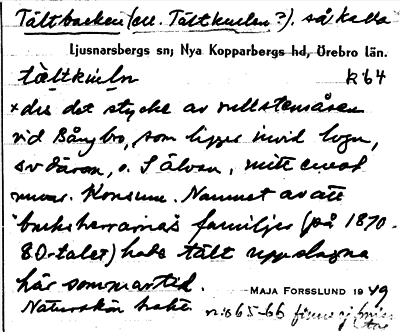 Tältbacken (el. Tältkullen?), så kalla
Ljusnarsbergs sn; Nya Kopparbergs hd, Örebro län.
tältkul̲n k 64
× des det stycke av rullstensåsen
vid Bångbro, som ligger invid
sv därom, o. S älven, mitt emot
nuvar. Konsum. Namnet av att
"bruksherrarnas familjer (på 1870-
80-talet) hade tält uppslagna
här sommartid.
MAJA FORSSLUND 1949
Naturskön trakt. n:o 65-66 finns ej